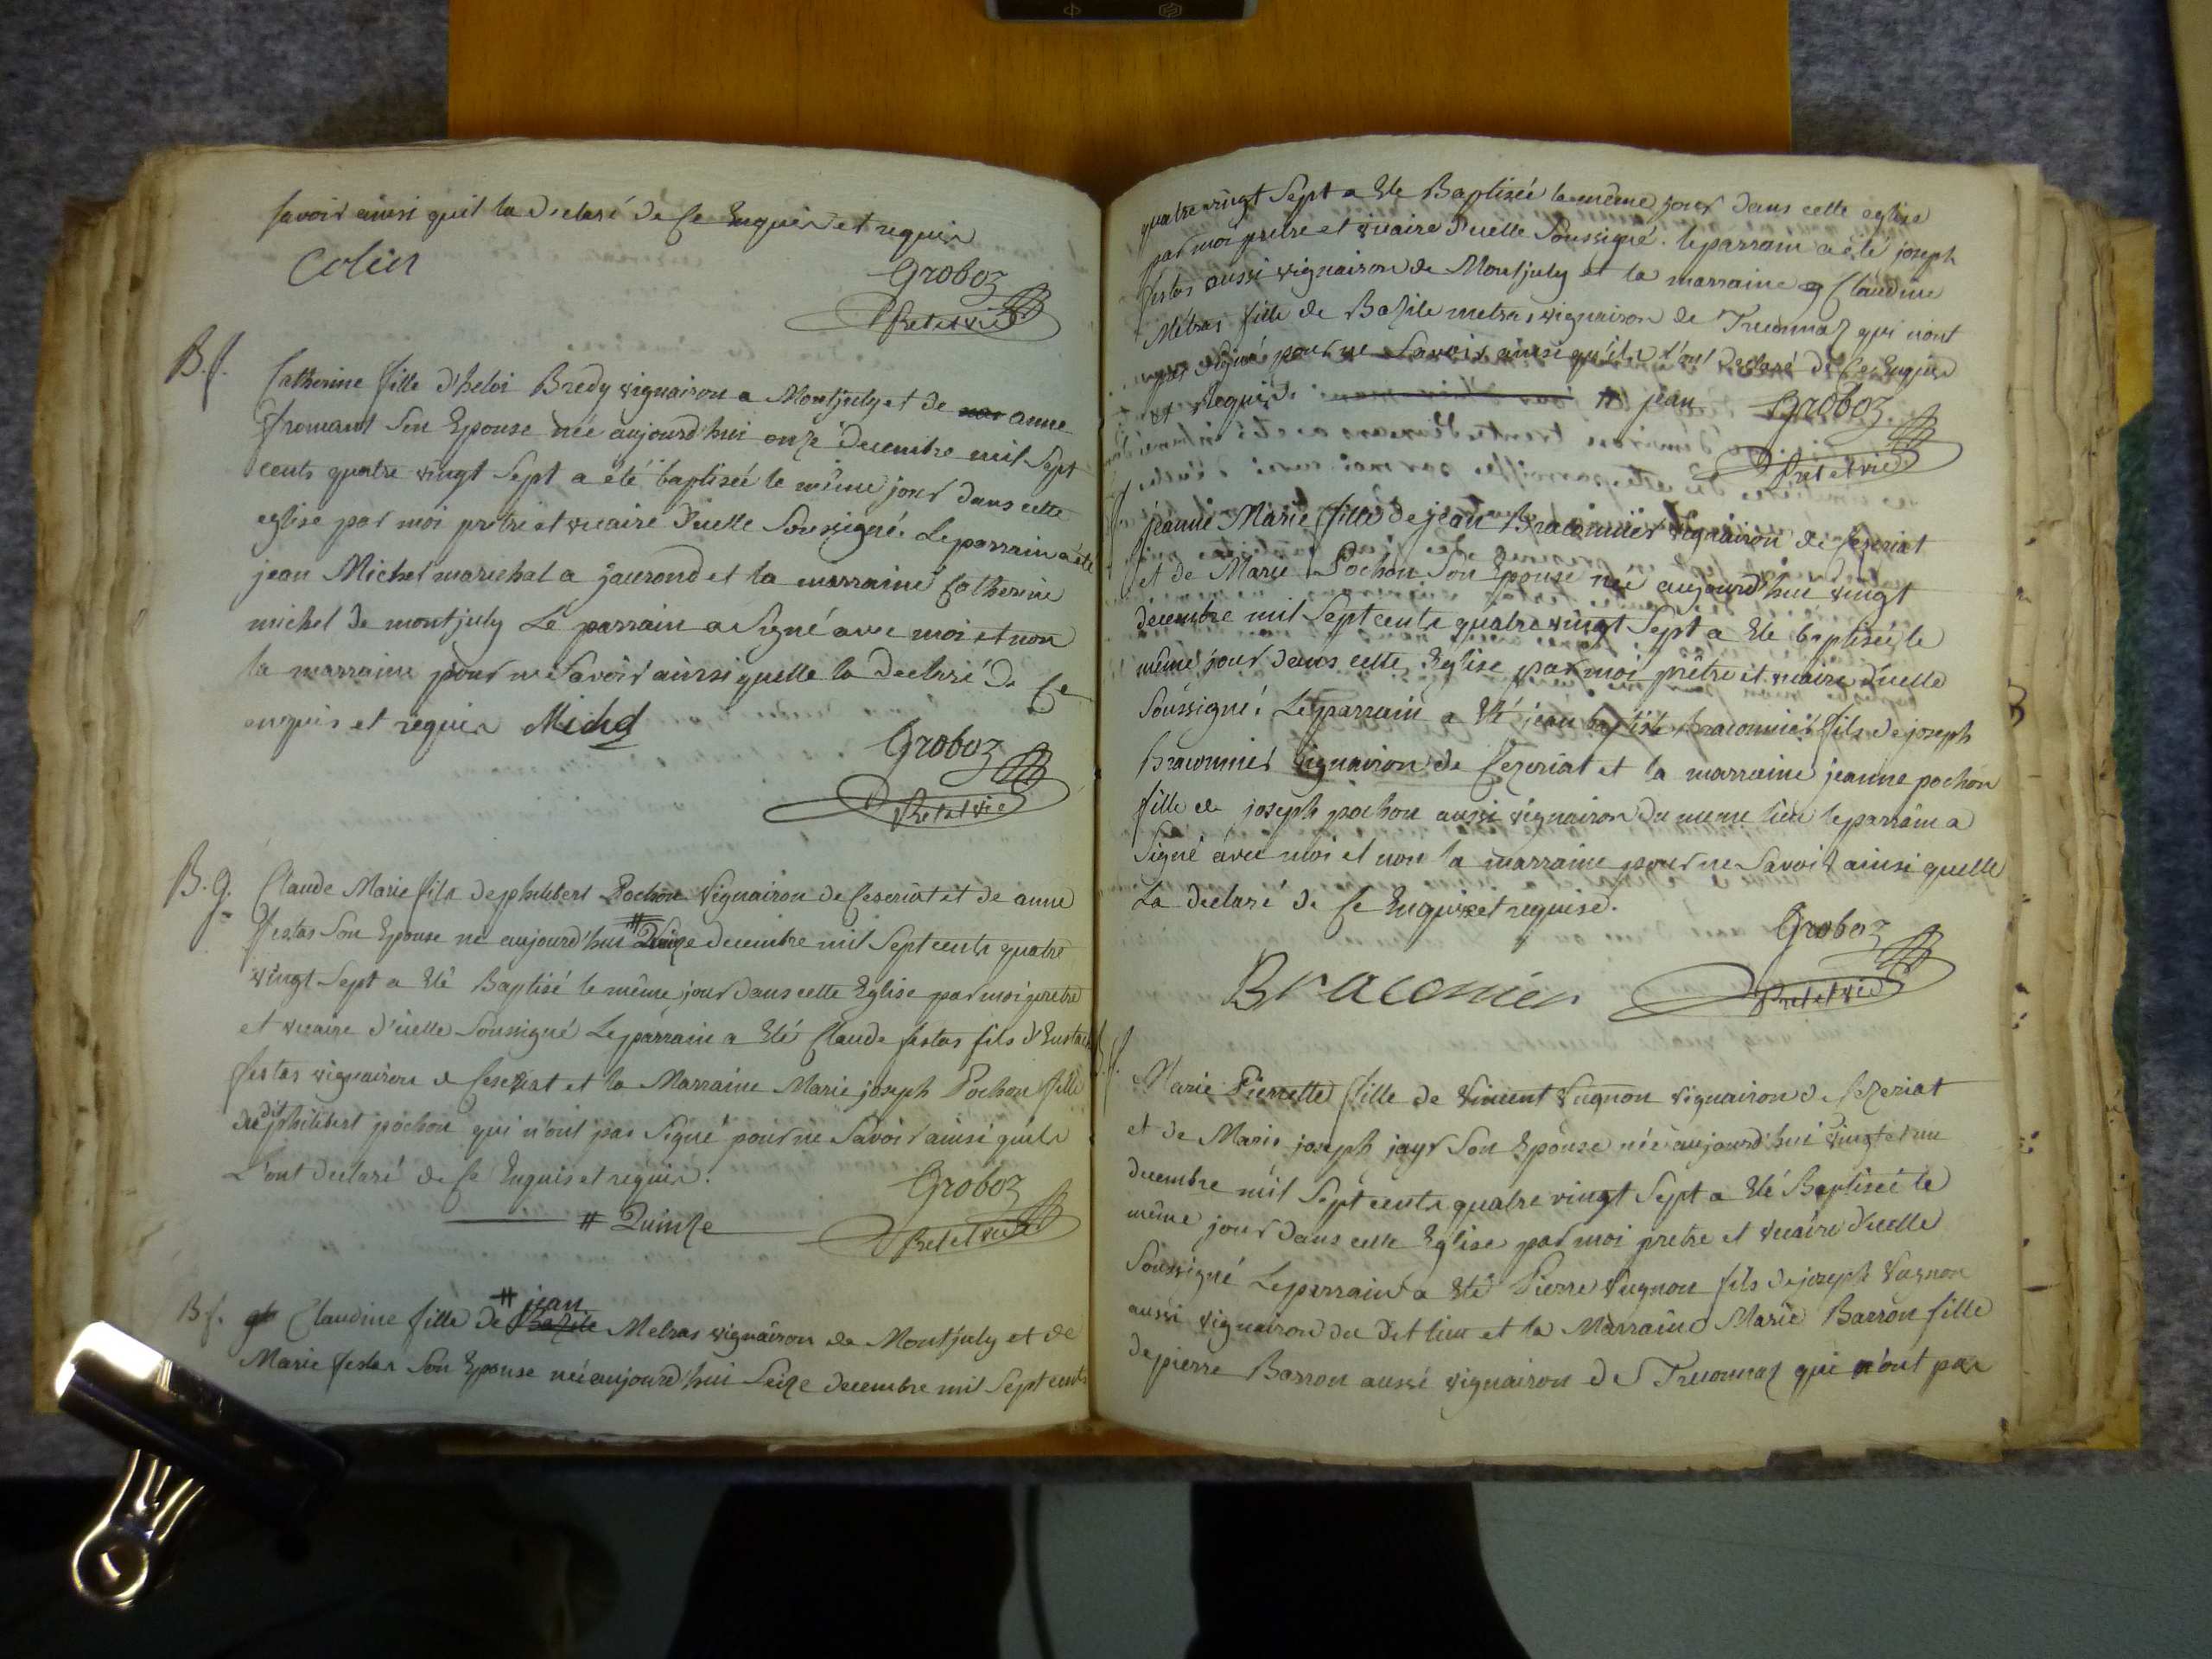 savoir ainsi quil la declaré de ce Enquis et requis
Colin
Groboz
Pret et vic
B.f.
Catherine fille d'heloi Bredy vignairon a Montjuly et de anne
fromant son Epouse née aujourd'hui onze decembre mil sept
cents quatre vingt sept a été baptisée le même jour dans cette
eglise par moi prêtre et vicaire d'icelle soussigné. Le parrain a été
jean Michel marechal a jasseron et la marraine Catherine
michel de montjuly Le parrain a signé avec moi et non
la marraine pour ne savoir ainsi quelle la declaré de ce
enquis et requis Michel
Groboz
Pret et vic
B.g.
Claude Marie fils de philibert Pochon vignairon de Ceseriat et de anne
festas son Epouse né aujourd'hui # decembre mil sept cents quatre
vingt sept a Eté Baptisé le même jour dans cette Eglise par moi pretre
et vicaire d'icelle soussigné Le parrain a Eté Claude festas fils d'Eustache
festas vignairon de Ceseriat et la Marraine Marie joseph Pochon fille
du dit philibert pochon qui n'ont pas signé pour ne savoir ainsi quils
L'ont declaré de ce Enquis et requis.
Groboz
# Quinze
Pret et vic
# jean
B f. Claudine fille de Bazile Metras vignairon de Montjuly et de
Marie festas son Epouse née aujourd'hui seize decembre mil sept cents
quatre vingt sept a Ete Baptisée le même jour dans cette eglise
par moi pretre et vicaire d'icelle soussigné. le parrain a été joseph
festas aussi vignairon de Montjuly et la marraine Claudine
Metras fille de Bazile metras vignairon de Treconnaz qui n'ont
pas signé pour ne savoir ainsi qu'ils l'ont declaré de ce Enquis
et Requis. # jean Groboz
Pret et vic
jeanne Marie fille de jean Braconnier vignairon de Ceseriat
et de Marie Pochon son Epouse née aujourd'hui vingt
decembre mil sept cents quatre vingt sept a Ete baptisée le
même jour dans cette Eglise par moi prêtre et vicaire d'icelle
soussigné. Le parrain a Eté jean baptiste braconnier fils de joseph
braconnier vignairon de Cezeriat et la marraine jeanne pochon
fille de joseph pochon aussi vignairon du meme lieu le parrain a
signé avec moi et non la marraine pour ne savoir ainsi quelle
La declaré de ce Enquise et requise.
Groboz
Braconier
Pret et vic
B.f.
Marie Pierrette fille de Vincent Vugnon vignairon de Cezeriat
et de Marie joseph jayr son Epouse née aujourd'hui vingt et un
decembre mil sept cents quatre vingt sept a Eté Baptisée le
même jour dans cette Eglise par moi pretre et vicaire d'icelle
soussigné Le parrain a Eté Pierre Vugnon fils de joseph Vugnon
aussi vignairon du dit lieu et la Marraine Marie Barron fille
de pierre Barron aussi vignairon de Treconnaz qui n'ont pas